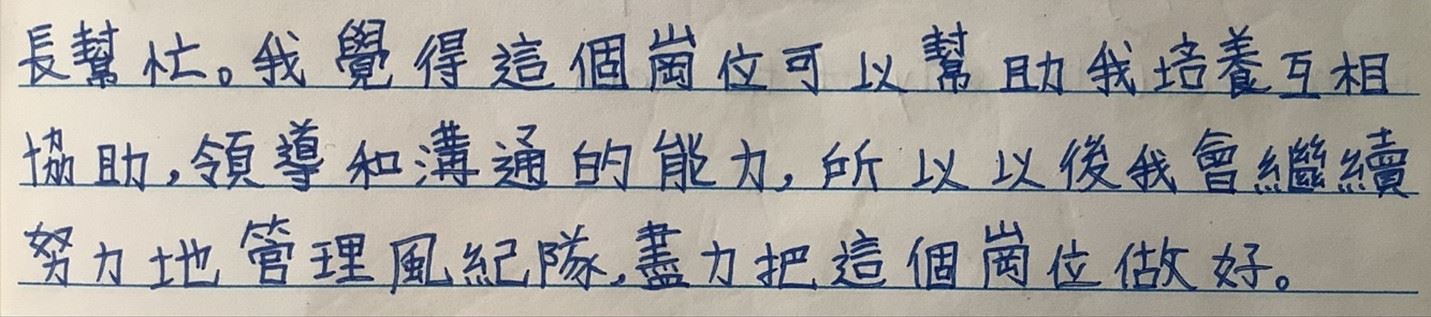 長幫忙。我覺得這個崗位可以幫助我培養互相
協助,領導和溝通的能力,所以以後我會繼續
努力地管理風紀隊,盡力把這個崗位做好。